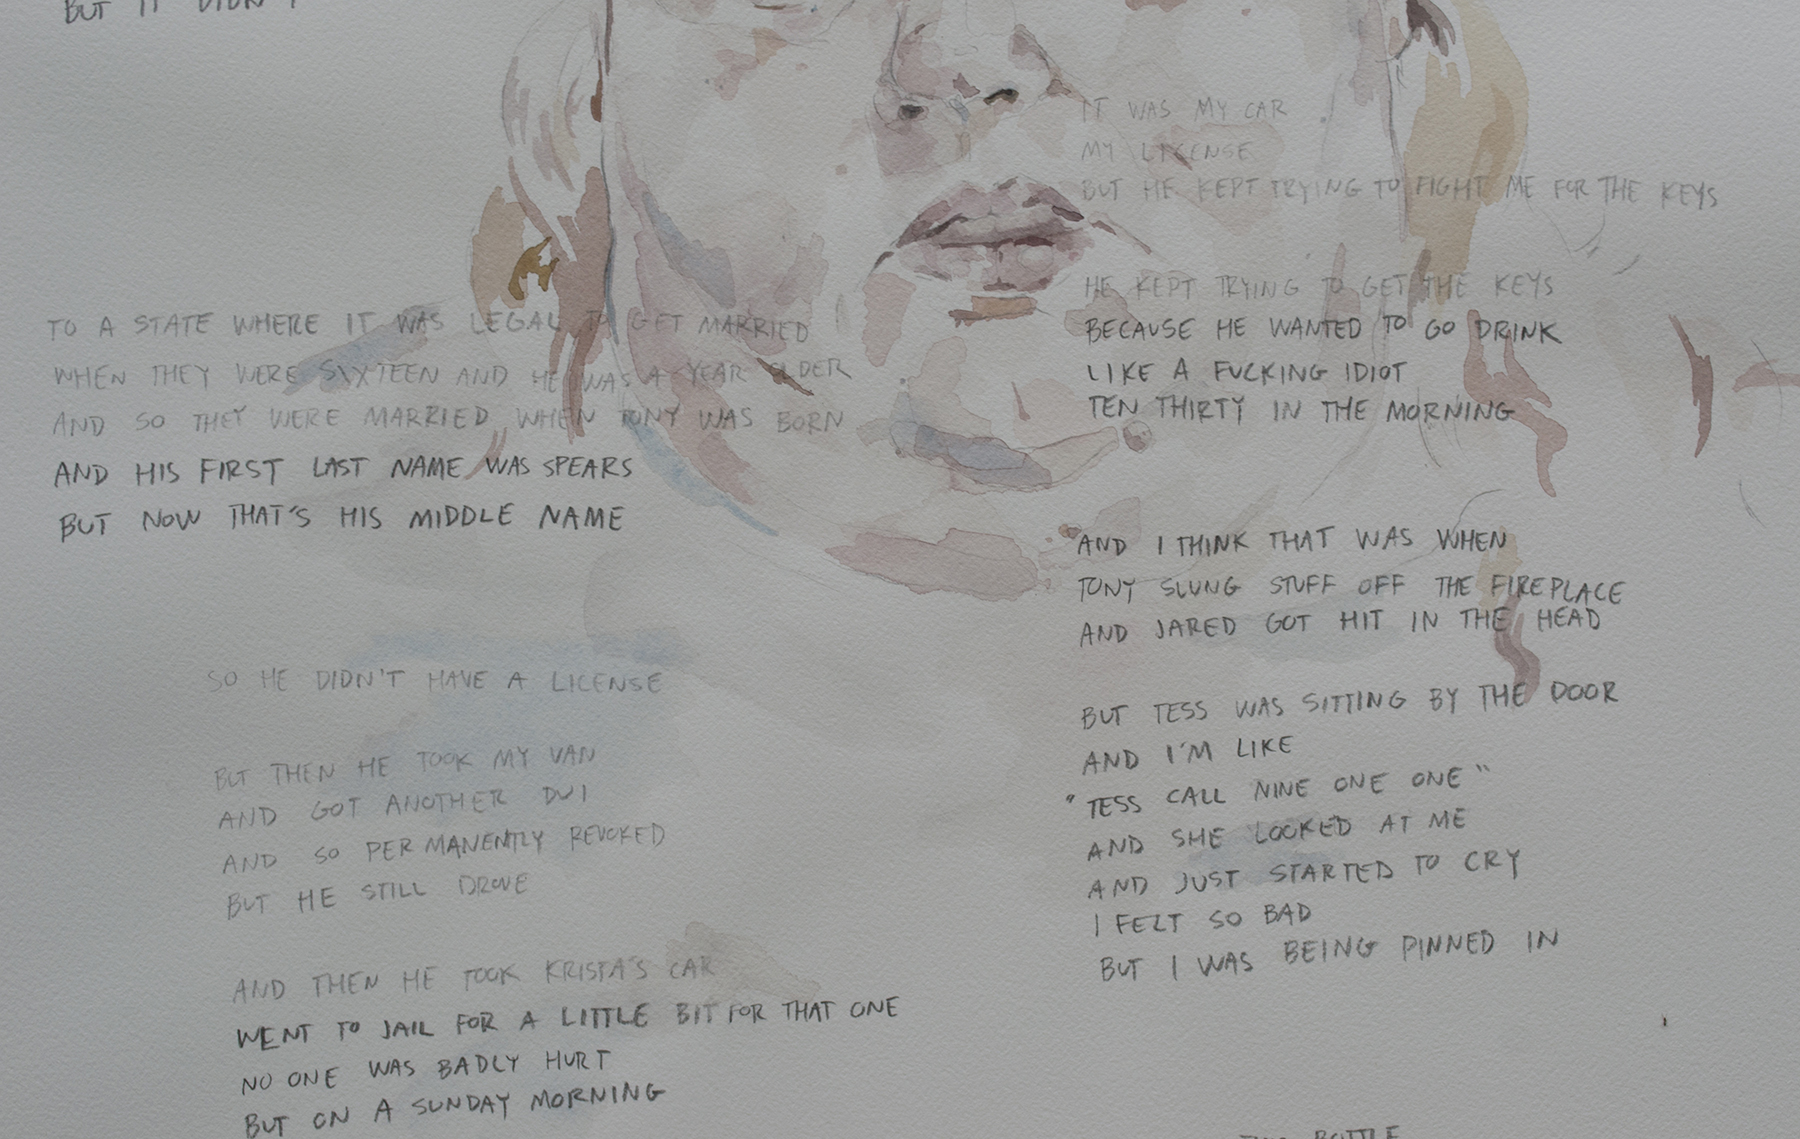 BUT IT DIDN'T
TO A STATE WHERE IT WAS LEGAL TO GET MARRIED
WHEN THEY WERE SIXTEEN AND HE WAS A YEAR OLDER
AND SO THEY WERE MARRIED WHEN TONY WAS BORN
AND HIS FIRST LAST NAME WAS SPEARS
BUT NOW THAT'S HIS MIDDLE NAME
SO HE DIDN'T HAVE A LICENSE
BUT THEN HE TOOK MY VAN
AND GOT ANOTHER DUI
AND SO PERMANENTLY REVOKED
BUT HE STILL DROVE
AND THEN HE TOOK KRISTA'S CAR
WENT TO JAIL FOR A LITTLE BIT FOR THAT ONE
NO ONE WAS BADLY HURT
BUT ON A SUNDAY MORNING
IT WAS MY CAR
MY LICENSE
BUT HE KEPT TRYING TO FIGHT ME FOR THE KEYS
HE KEPT TRYING TO GET THE KEYS
BECAUSE HE WANTED TO GO DRINK
LIKE A FUCKING IDIOT
TEN THIRTY IN THE MORNING
AND I THINK THAT WAS WHEN
TONY SLUNG STUFF OFF THE FIREPLACE
AND JARED GOT HIT IN THE HEAD
BUT TESS WAS SITTING BY THE DOOR
AND I'M LIKE
"TESS CALL NINE ONE ONE"
AND SHE LOOKED AT ME
AND JUST STARTED TO CRY
I FELT SO BAD
BUT I WAS BEING PINNED IN
BOTTLE